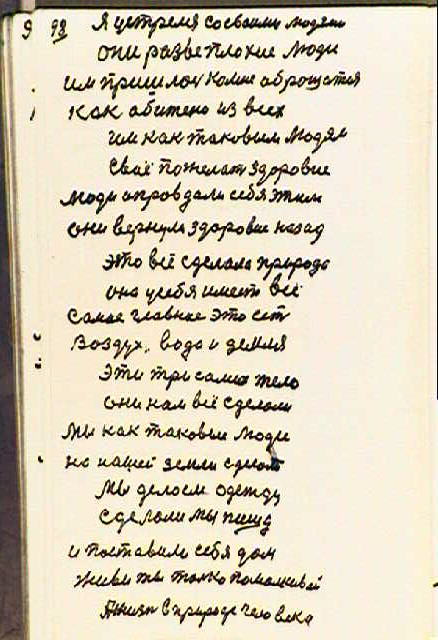 9 98 Я устремя со своими людями
они разве плохие люди
им пришлой ко мне аброщатся
как абижено из всех
им как таковым людям
Своё пожелат здоровие
люди оправдали себя этим
они вернули здоровие назад
это всё сделала природа
она у себя имеет всё
Самое главные это ест
Воздух, вода и земля
Эти три самих тело
они нам всё сделали
Мы как таковые люди
на нашей земли сделали
Мы делаем одежду
Сделали мы пищу
и поставили себя дом
живи ты только помаленкой
Жизн в природе человека